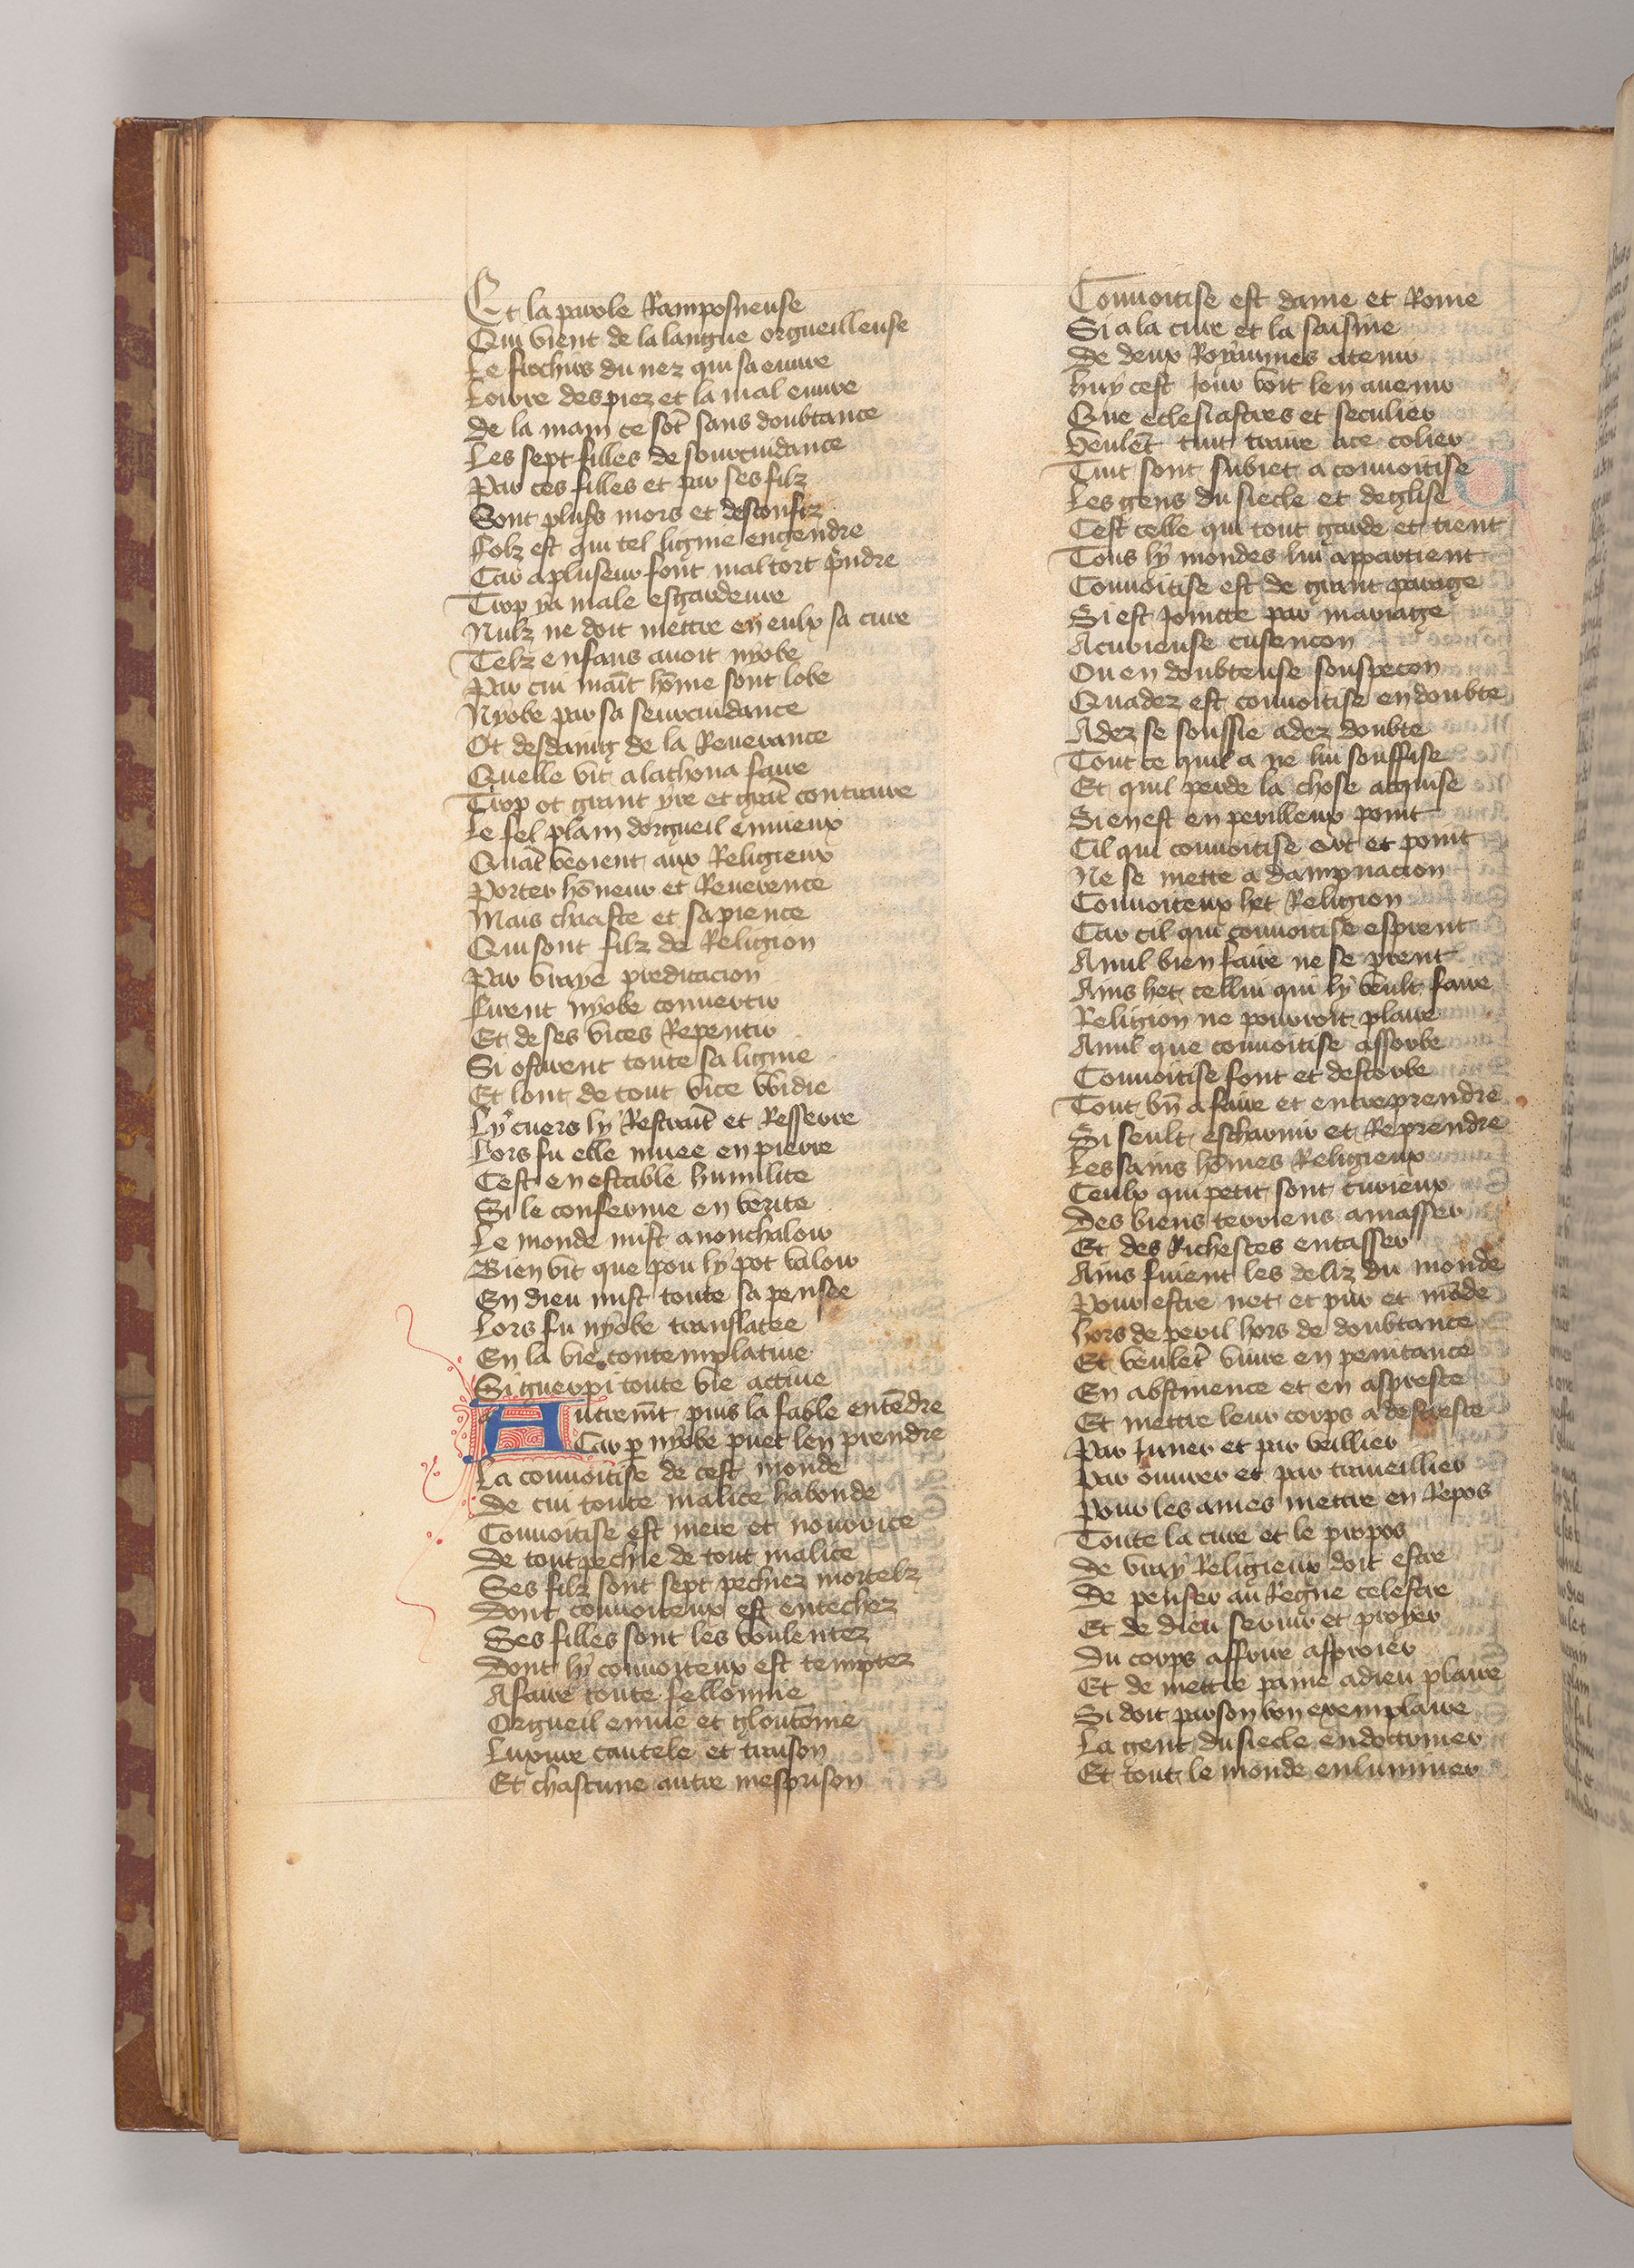 Et la parole Ramposneuse
Qui vient de la langue orgueilleuse
Le fronchirs du nez qui sa euure
Loirre des piez et la mal euure
De la main ce sōt sans doubtance
Les sept filles de sourcuidance
Par ces filles et par ses filz
Sont plus's mors et desconfiz
Folz est qui tel lignie engendre
Car a pluseurs font mal tort p̄ndre
Trop y a male esgardeure
Nulz ne doit mettre en eulx sa cure
Telz enfans auoit nyobe
Par cui maīt hōme sont lobe
Nyobe par sa seurcuidance
Ot desdaing de la Reuerance
Quelle vit a lathona faire
Trop ot grant yre et grāt contraire
Le fel plain dorgueil enuieux
Quāt veoient aux Religieux
Porter hōneur et Reuerence
Mais chaaste et sapience
Qui sont filz de Religion
Par vraye predicacion
Firent nyobe conuertir
Et de ses vices Repentir
Si osterent toute sa lignie
Et lont de tout vice vuidie
Ly cuers ly Restraīt et Resserre
Lors fu elle muee en pierre
Cest en estable humilite
Si le conferme en verite
Le monde mist a nonchaloir
Bien vit que pou ly pot valoir
En dieu mist toute sa pensee
Lors fu nyobe translatee
En la vie contemplatiue
Si guerpi toute vie actiue
Autremēt puis la fable entēdre
Car p nyobe puet len prendre
La conuoitise de cest monde
De cui toute malice habonde
Conuoitise est mere et nourrice
De tout pechie de tout malice
Ses filz sont sept pechiez mortelz
Dont conuoiteux est entechez
Ses filles sont les voulentez
Dont ly conuoiteux est temptez
A faire toute fellonnie
Orgueil enuie et gloutōnie
Luxure cautele et traison
Et chascune autre mesprison
Conuoitise est dame et Rome
Si a la cure et la saisine
De deux Royaumes a tenir
Huy cest Jour voit len auenir
Que eclesiastres et seculier
Veulēt tuit traire a ce colier
Tuit sont subiet a conuoitise
Les gens du siecle et deglise
Cest celle qui tout garde et tient
Tous ly mondes lui appartient
Conuoitise est de grant parage
Si est Jointte par mariage
A curieuse cusencon
Ou en doubteuse souspecon
Quadez est conuoitise en doubte
Adez se soussie adez doubte
Tout ce quil a ne lui souffise
Et quil perde la chose acquise
Si en est en perilleux point
Cil qui conuoitise art et point
Ne se mette a dampnacion
Conuoiteux het Religion
Car cil qui conuoitise esprent
A nul bien faire ne se prent
Ains het cellui qui ly veult faire
Religion ne pourroit plaire
A nul que conuoitise assorbe
Conuoitise font et destorbe
Tout bn̄ a faire et entreprendre
Si seult escharnir et Reprendre
Les sains hōmes Religieux
Ceulx qui petit sont curieux
Des biens terriens amasser
Et des Richestes entasser
Ains fuient les deliz du monde
Pour estre net et pur et mōde
Hors de peril hors de doubtance
Et veulēt viure en penitance
En abstinence et en aspreste
Et mettre leur corps a destreste
Par Juner et par veillier
Par ouurer et par traueillier
Pour les ames mettre en Repos
Toute la cure et le propos
De vray Religieux doit estre
De penser au Regne celestre
Et de dieu seruir et proyer
Du corps affrire asproier
Et de mettre paine a dieu plaire
Si doit par son bon exemplaire
La gent du siecle endoctriner
Et tout le monde enluminer